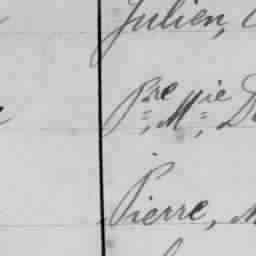 Julien,
Pre, Mie, D
Pierre, M